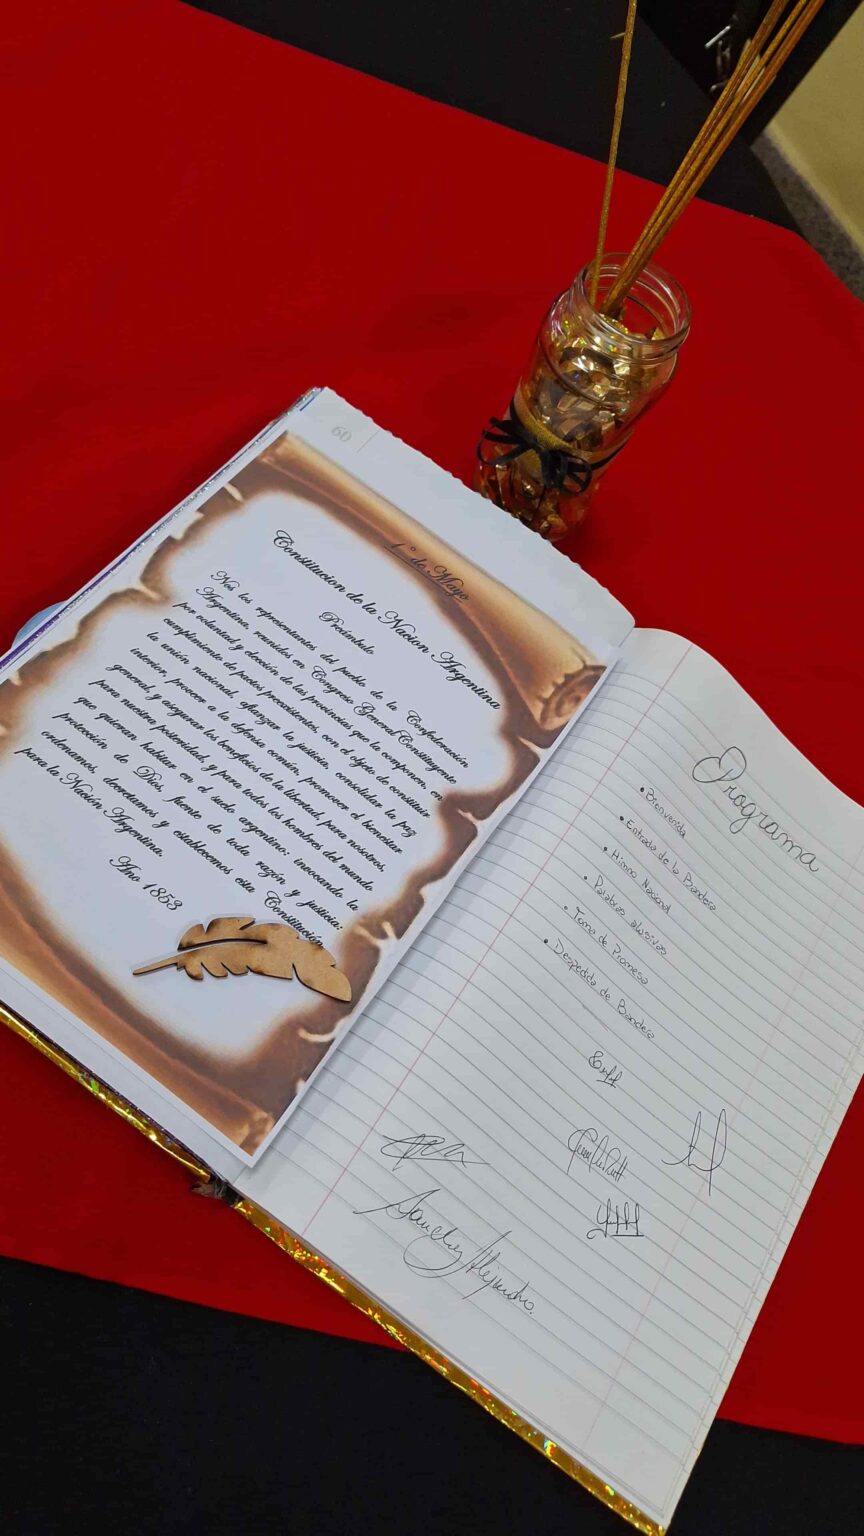 60
1° de Mayo
Constitucion de la Nacion Argentina
Preámbulo
Nos los representantes del pueblo de la Confederación
Argentina, reunidos en Congreso General Constituyente
por voluntad y elección de las provincias que la componen, en
cumplimiento de pactos preexistentes, con el objeto de constituir
la unión nacional, afianzar la justicia, consolidar la paz
interior, proveer a la defensa común, promover el bienestar
general, y asegurar los beneficios de la libertad, para nosotros,
para nuestra posteridad, y para todos los hombres del mundo
que quieran habitar en el suelo argentino: invocando la
protección de Dios, fuente de toda razón y justicia:
ordenamos, decretamos y establecemos esta Constitución,
para la Nación Argentina.
Año 1853
Programa
• Bienvenida
• Entrada de la Bandera
• Himno Nacional
• Palabras alusivas
• Toma de Promesa
• Despedida de Bandera
Sanchez Alejandro.